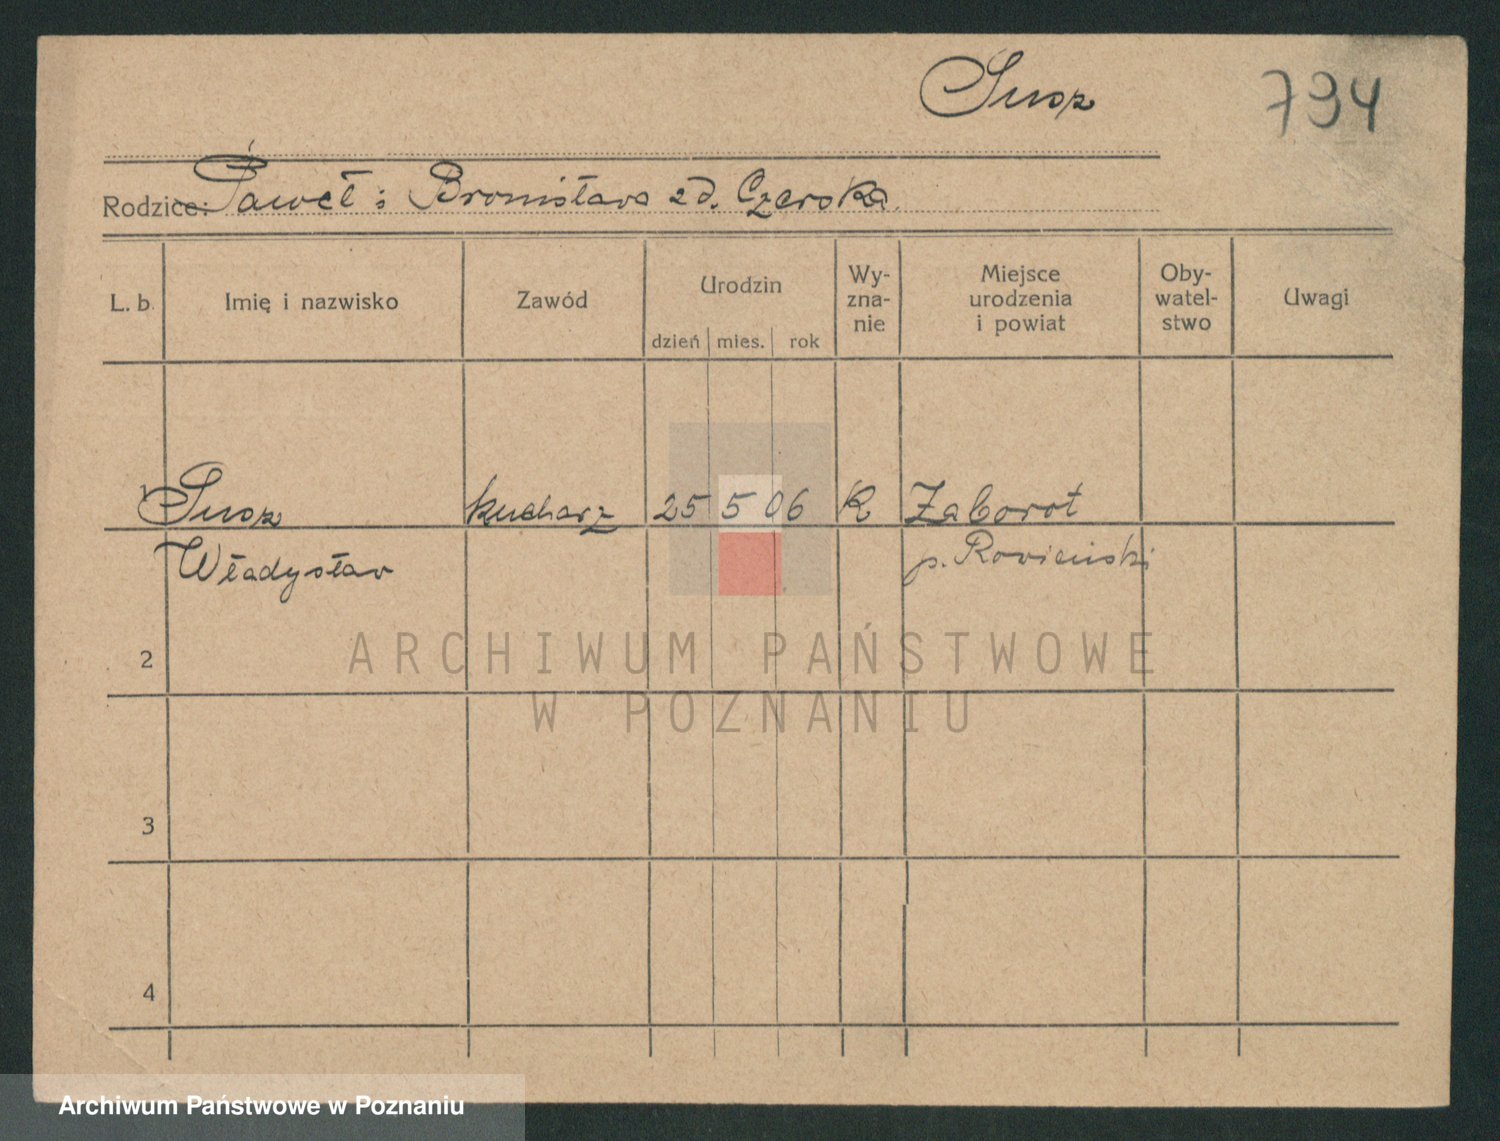 Susz
794
Rodzice: Paweł i Bronisława zd. Czerska.
L. b. Imię i nazwisko Zawód Urodzin dzień mies. rok Wy-zna-nie Miejsce urodzenia i powiat Oby-watel-stwo Uwagi
1 Susz kucharz 25 5 06 K Zaborot
Władysław p. Rovieński
2
ARCHIWUM PAŃSTWOWE
W POZNANIU
3
4
Archiwum Państwowe w Poznaniu